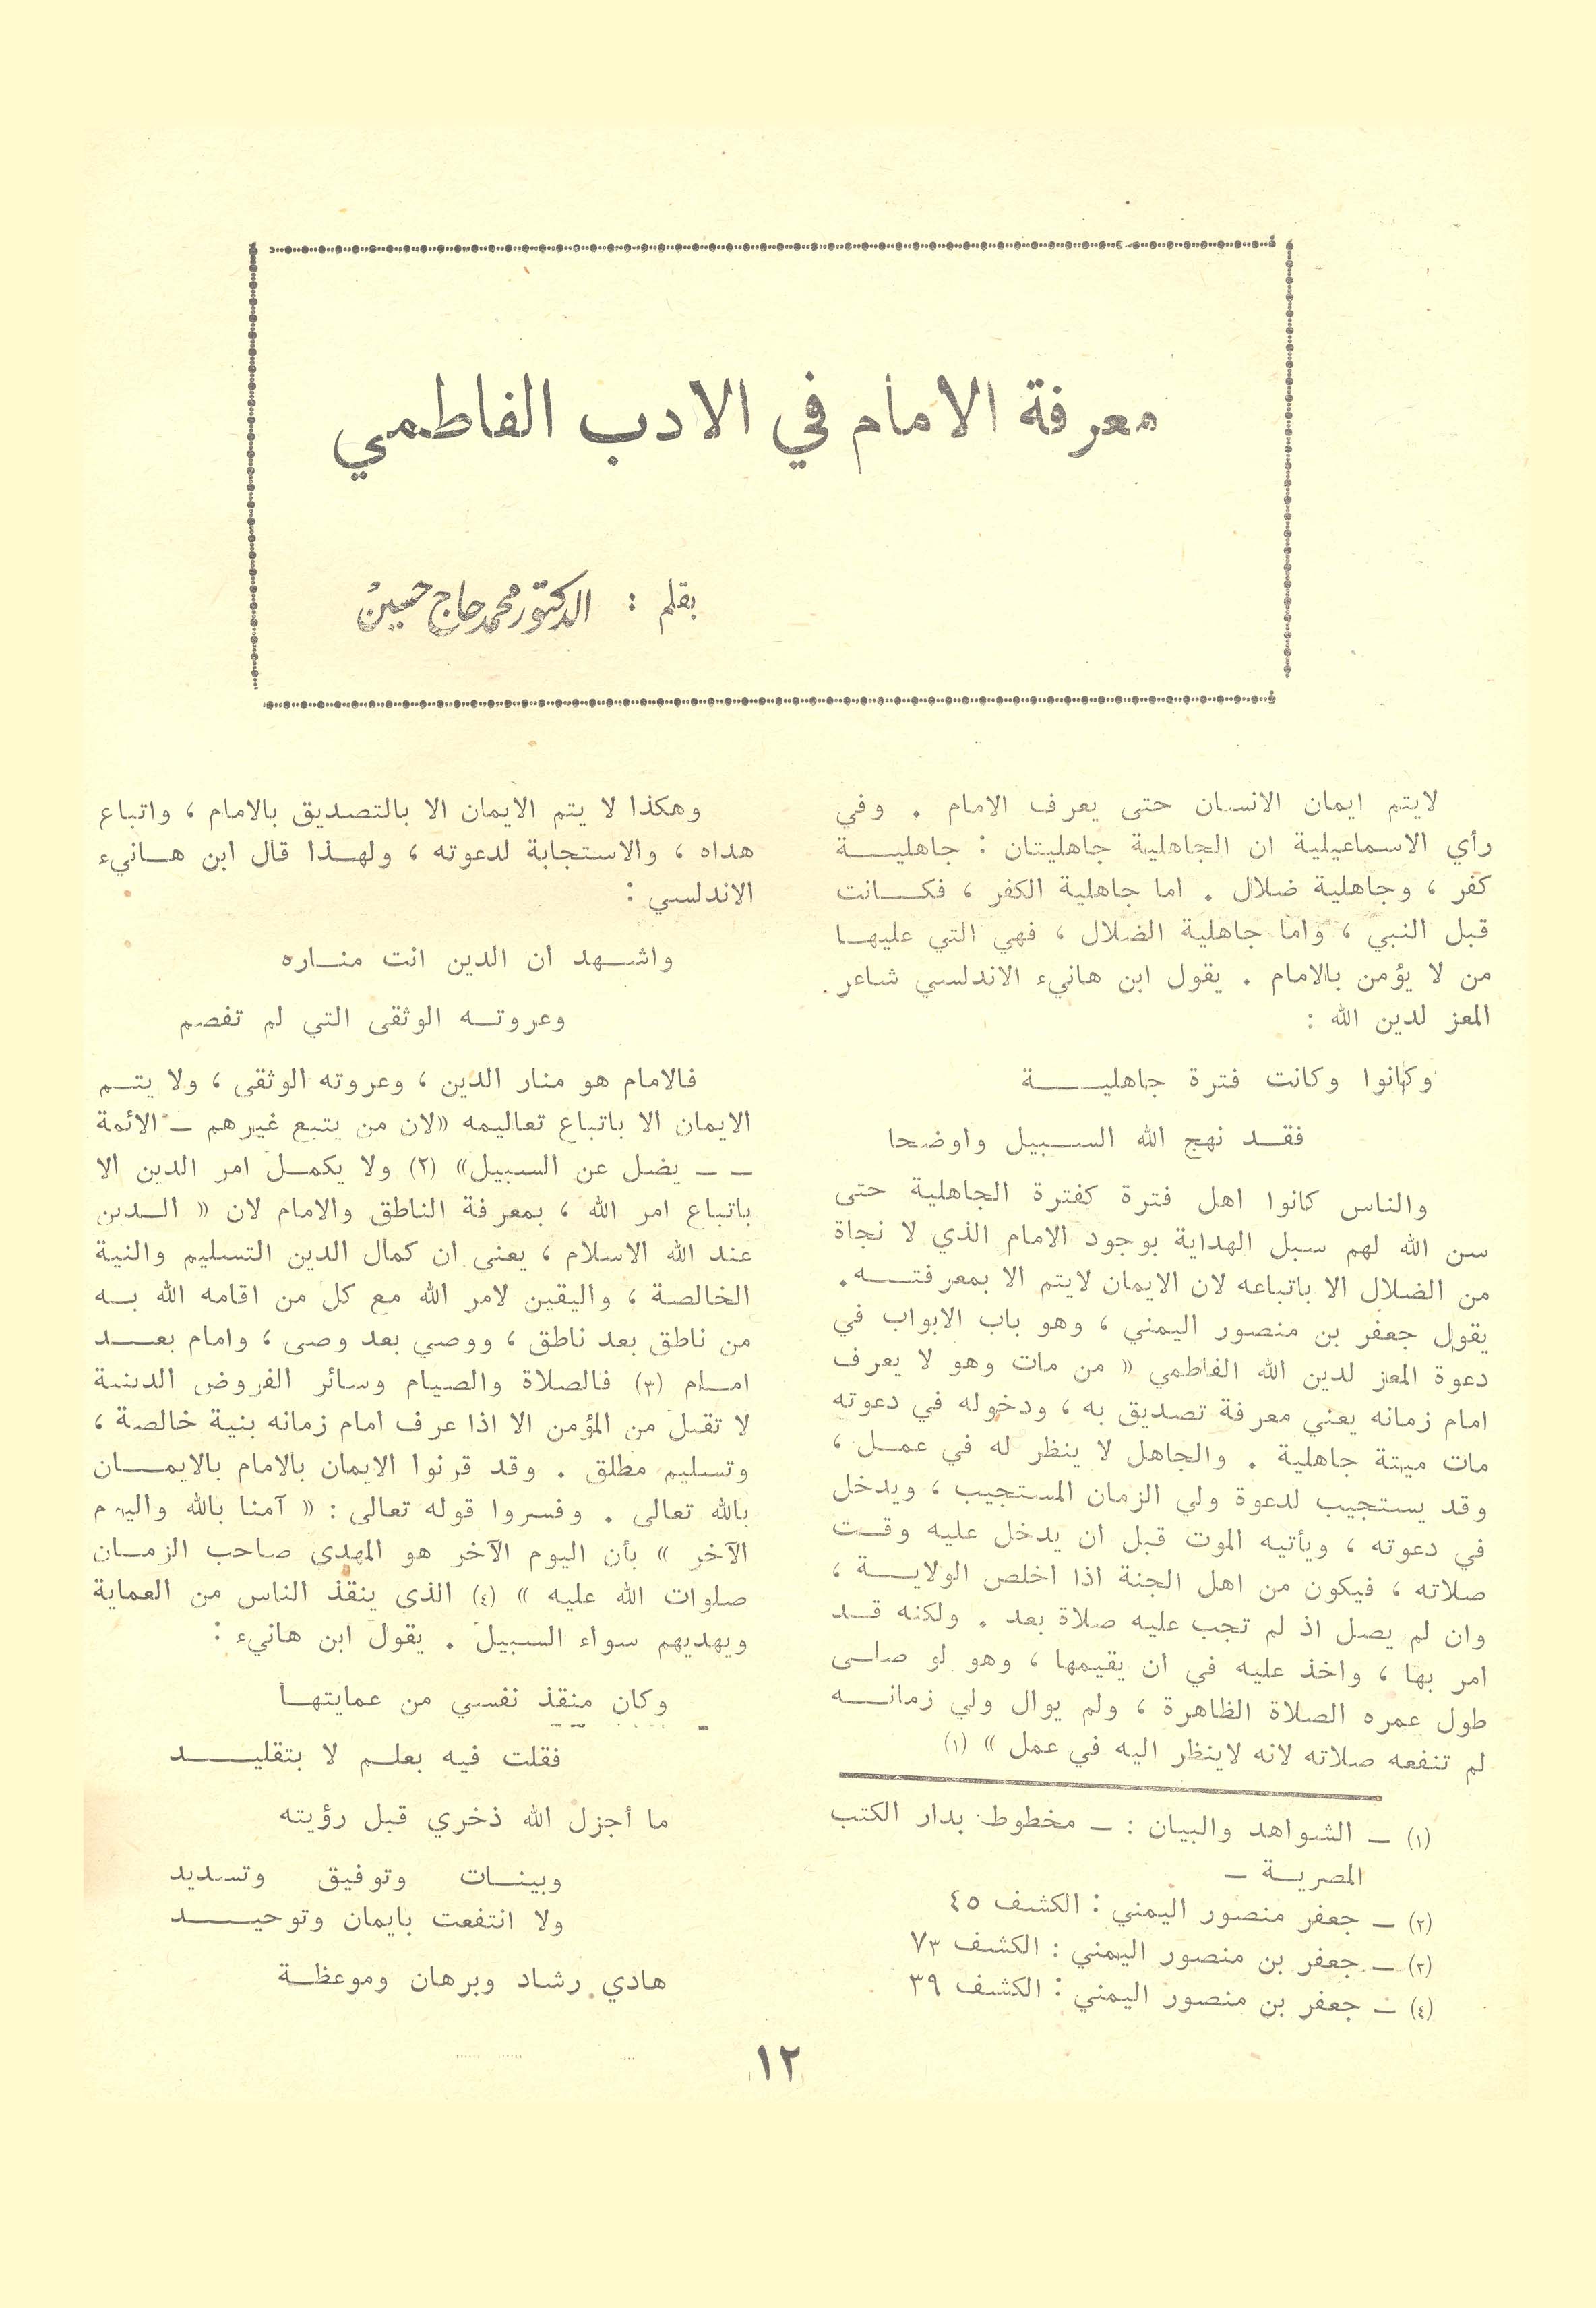 معرفة الامام في الادب الفاطمي
بقلم : الدكتور محمد حاج حسين
لايتم ايمان الانسان حتى يعرف الامام . وفي
رأي الاسماعيلية ان الجاهلية جاهليتان : جاهلية
كفر ، وجاهلية ضلال . اما جاهلية الكفر ، فكانت
قبل النبي ، واما جاهلية الضلال ، فهي التي عليها
من لا يؤمن بالامام . يقول ابن هانيء الاندلسي شاعر
المعز لدين الله :
وكانوا وكانت فترة جاهلية
فقد نهج الله السبيل واوضحا
والناس كانوا اهل فترة كفترة الجاهلية حتى
سن الله لهم سبل الهداية بوجود الامام الذي لا نجاة
من الضلال الا باتباعه لان الايمان لايتم الا بمعرفته .
يقول جعفر بن منصور اليمني ، وهو باب الابواب في
دعوة المعز لدين الله الفاطمي « من مات وهو لا يعرف
امام زمانه يعني معرفة تصديق به ، ودخوله في دعوته
مات ميتة جاهلية . والجاهل لا ينظر له في عمل ،
وقد يستجيب لدعوة ولي الزمان المستجيب ، ويدخل
في دعوته ، ويأتيه الموت قبل ان يدخل عليه وقت
صلاته ، فيكون من اهل الجنة اذا اخلص الولاية ،
وان لم يصل اذ لم تجب عليه صلاة بعد . ولكنه قد
امر بها ، واخذ عليه في ان يقيمها ، وهو لو صلى
طول عمره الصلاة الظاهرة ، ولم يوال ولي زمانه
لم تنفعه صلاته لانه لاينظر اليه في عمل » (١)
(١) – الشواهد والبيان : – مخطوط بدار الكتب
المصرية –
(٢) – جعفر منصور اليمني : الكشف ٤٥
(٣) – جعفر بن منصور اليمني : الكشف ٧٣
(٤) – جعفر بن منصور اليمني : الكشف ٣٩
وهكذا لا يتم الايمان الا بالتصديق بالامام ، واتباع
هداه ، والاستجابة لدعوته ، ولهذا قال ابن هانيء
الاندلسي :
واشهد ان الدين انت مناره
وعروته الوثقى التي لم تفصم
فالامام هو منار الدين ، وعروته الوثقى ، ولا يتم
الايمان الا باتباع تعاليمه «لان من يتبع غيرهم – الائمة
– – يضل عن السبيل» (٢) ولا يكمل امر الدين الا
باتباع امر الله ، بمعرفة الناطق والامام لان « الدين
عند الله الاسلام ، يعنى ان كمال الدين التسليم والنية
الخالصة ، واليقين لامر الله مع كل من اقامه الله به
من ناطق بعد ناطق ، ووصي بعد وصى ، وامام بعد
امام (٣) فالصلاة والصيام وسائر الفروض الدينية
لا تقبل من المؤمن الا اذا عرف امام زمانه بنية خالصة ،
وتسليم مطلق . وقد قرنوا الايمان بالامام بالايمان
بالله تعالى . وفسروا قوله تعالى : « آمنا بالله واليوم
الآخر » بأن اليوم الآخر هو المهدى صاحب الزمان
صلوات الله عليه » (٤) الذى ينقذ الناس من العماية
ويهديهم سواء السبيل . يقول ابن هانيء :
وكان منقذ نفسي من عمايتها
فقلت فيه بعلم لا بتقليد
ما أجزل الله ذخري قبل رؤيته
وبينات وتوفيق وتسديد
ولا انتفعت بايمان وتوحيد
هادي رشاد وبرهان وموعظة
١٢